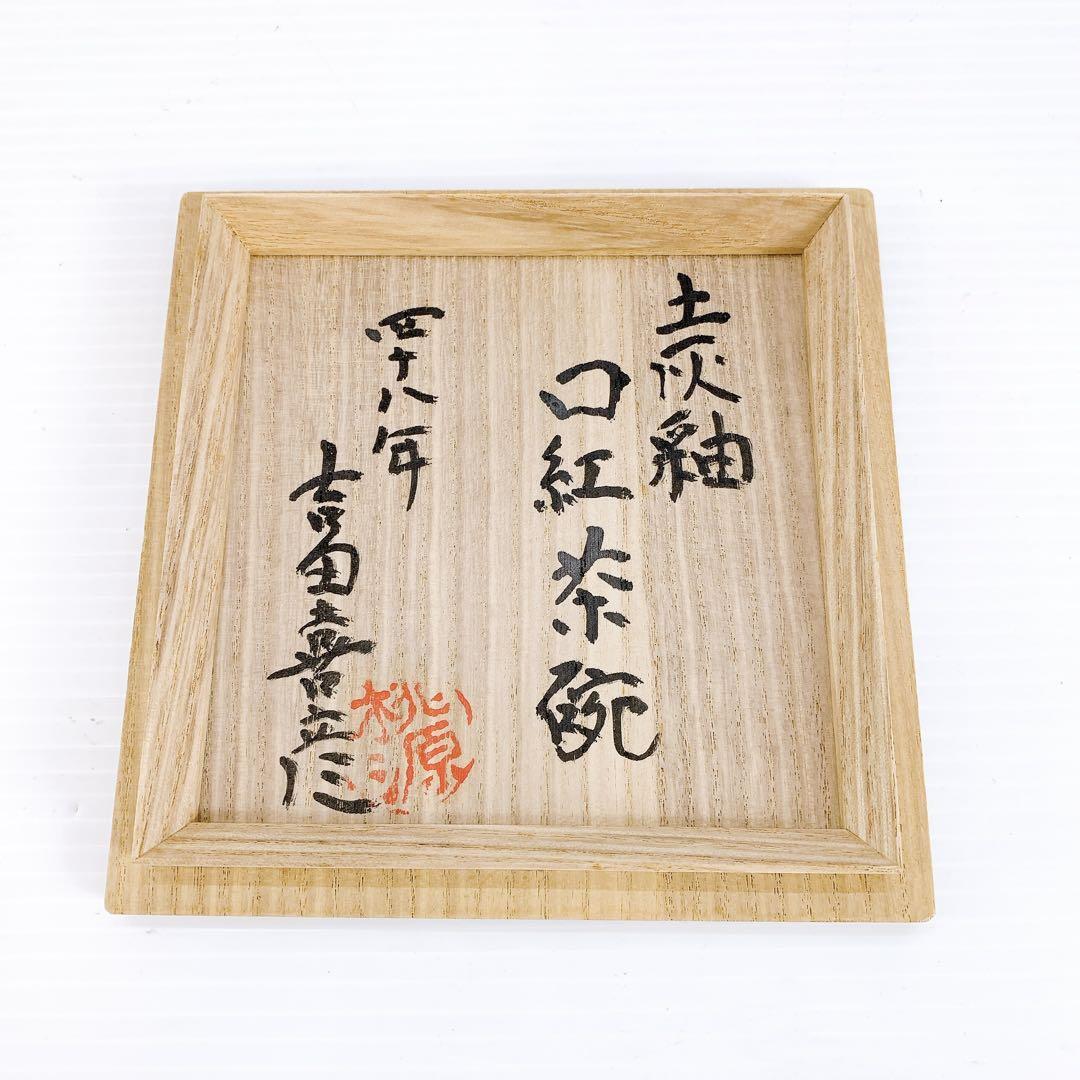 土灰釉
口紅茶碗
四十八年
吉田喜彦
桃原